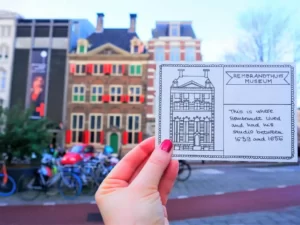 REMBRANDTHUIS
MUSEUM
THIS IS WHERE
REMBRANDT LIVED
AND HAD HIS
STUDIO BETWEEN
1639 AND 1656